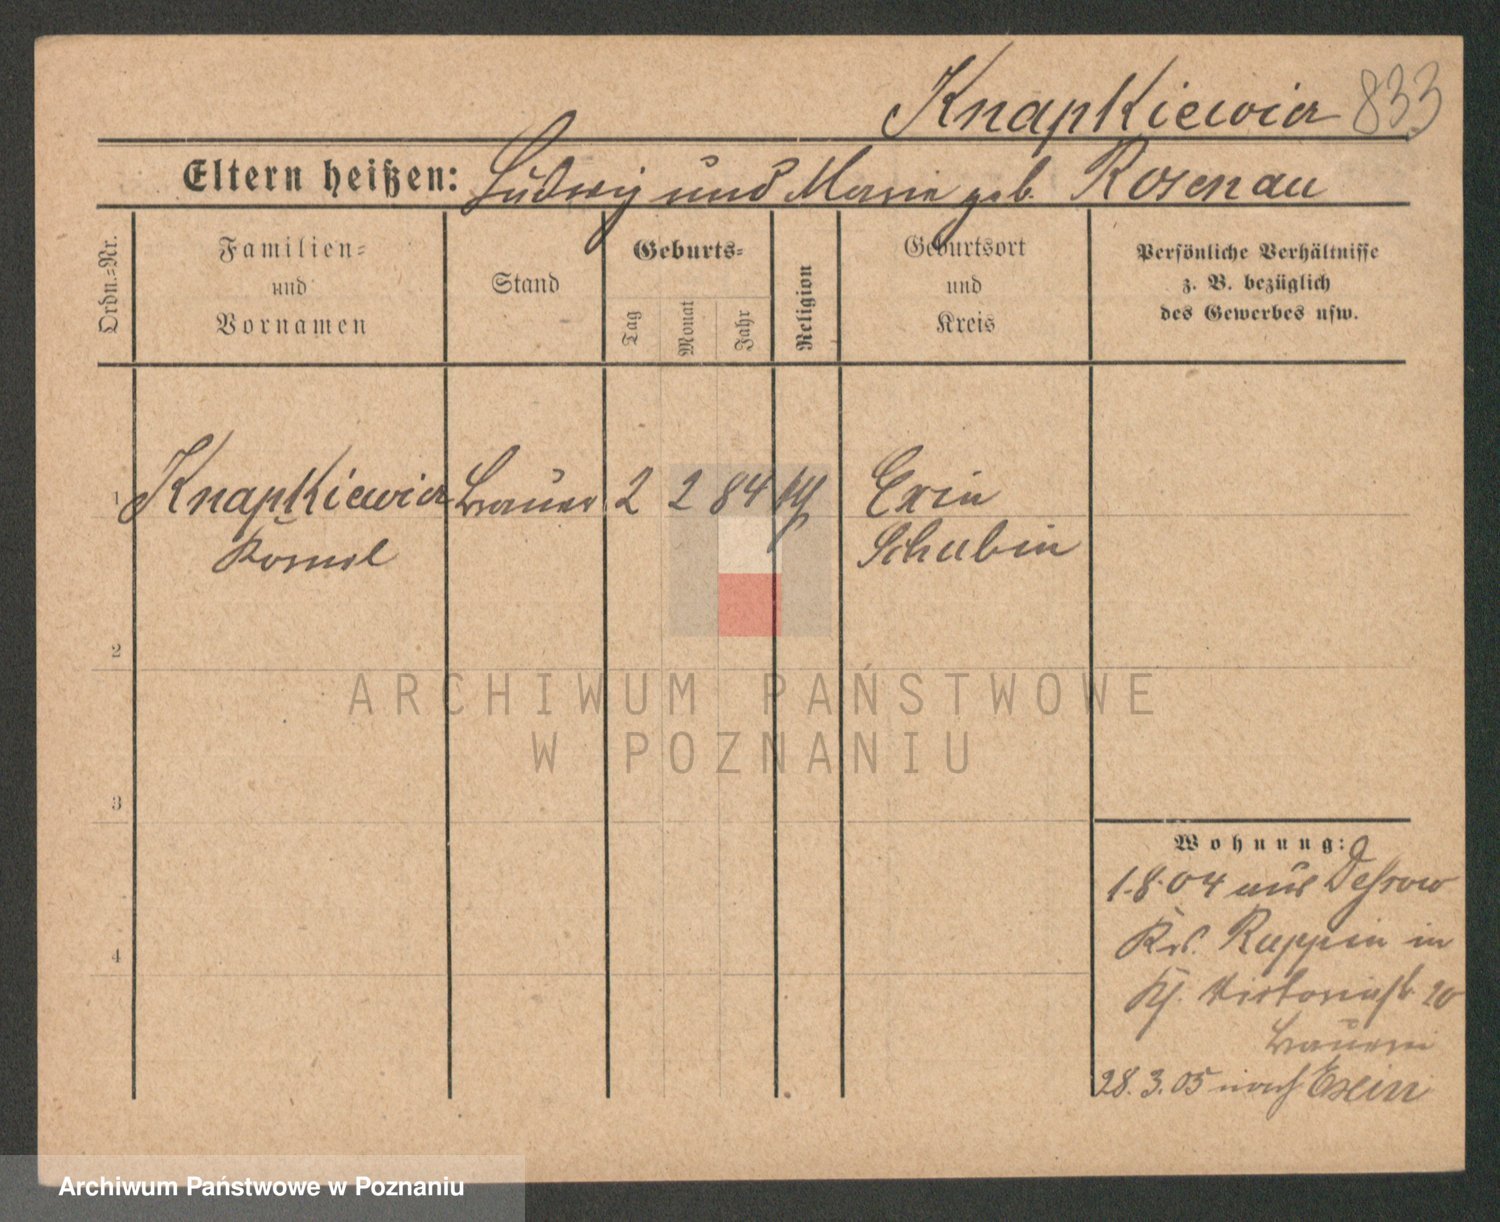 Knapkiewicz 833
Eltern heißen: Ludwig und Marie geb. Rosenau
Ordn.=Nr.
Familien=
und
Vornamen
Stand
Geburts=
Tag
Monat
Jahr
Religion
Geburtsort
und
Kreis
Persönliche Verhältnisse
z. B. bezüglich
des Gewerbes usw.
1 Knapkiewicz Brauer 2 2 84 kth Exin
Kornel Schubin
2
3
4
Wohnung:
1.8.04 aus Dessow
Krs. Ruppin in
20
Brauerei
28.3.05 nach Exin
ARCHIWUM PAŃSTWOWE
W POZNANIU
Archiwum Państwowe w Poznaniu